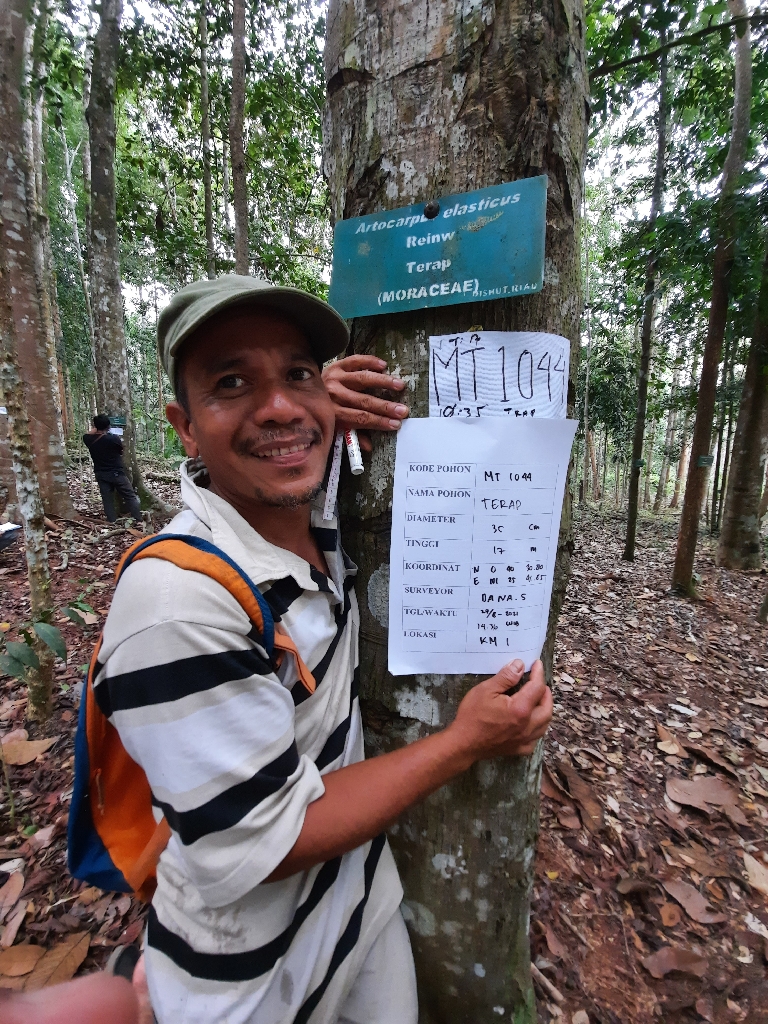 Artocarpus elasticus
Reinw
Terap
(MORACEAE) DISHUT.RIAU
MT 1044
TRAP
KODE POHON MT 1044
NAMA POHON TERAP
DIAMETER 35 Cm
TINGGI 17 m
KOORDINAT N 0 40 30.80
E 101 25
SURVEYOR DANA.S
TGL/WAKTU
14.36 WIB
LOKASI KM 1